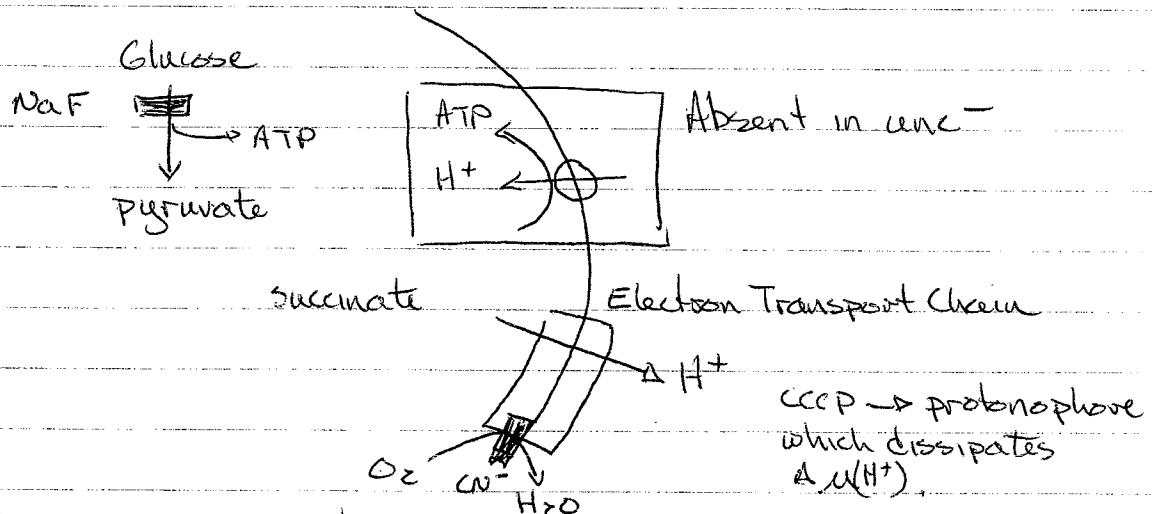 Glucose
NaF
ATP
pyruvate
ATP
H⁺
Absent in unc⁻
succinate
Electron Transport Chain
H⁺
O₂
CN⁻
H₂O
CCCP → protonophore
which dissipates
Δμ(H⁺).